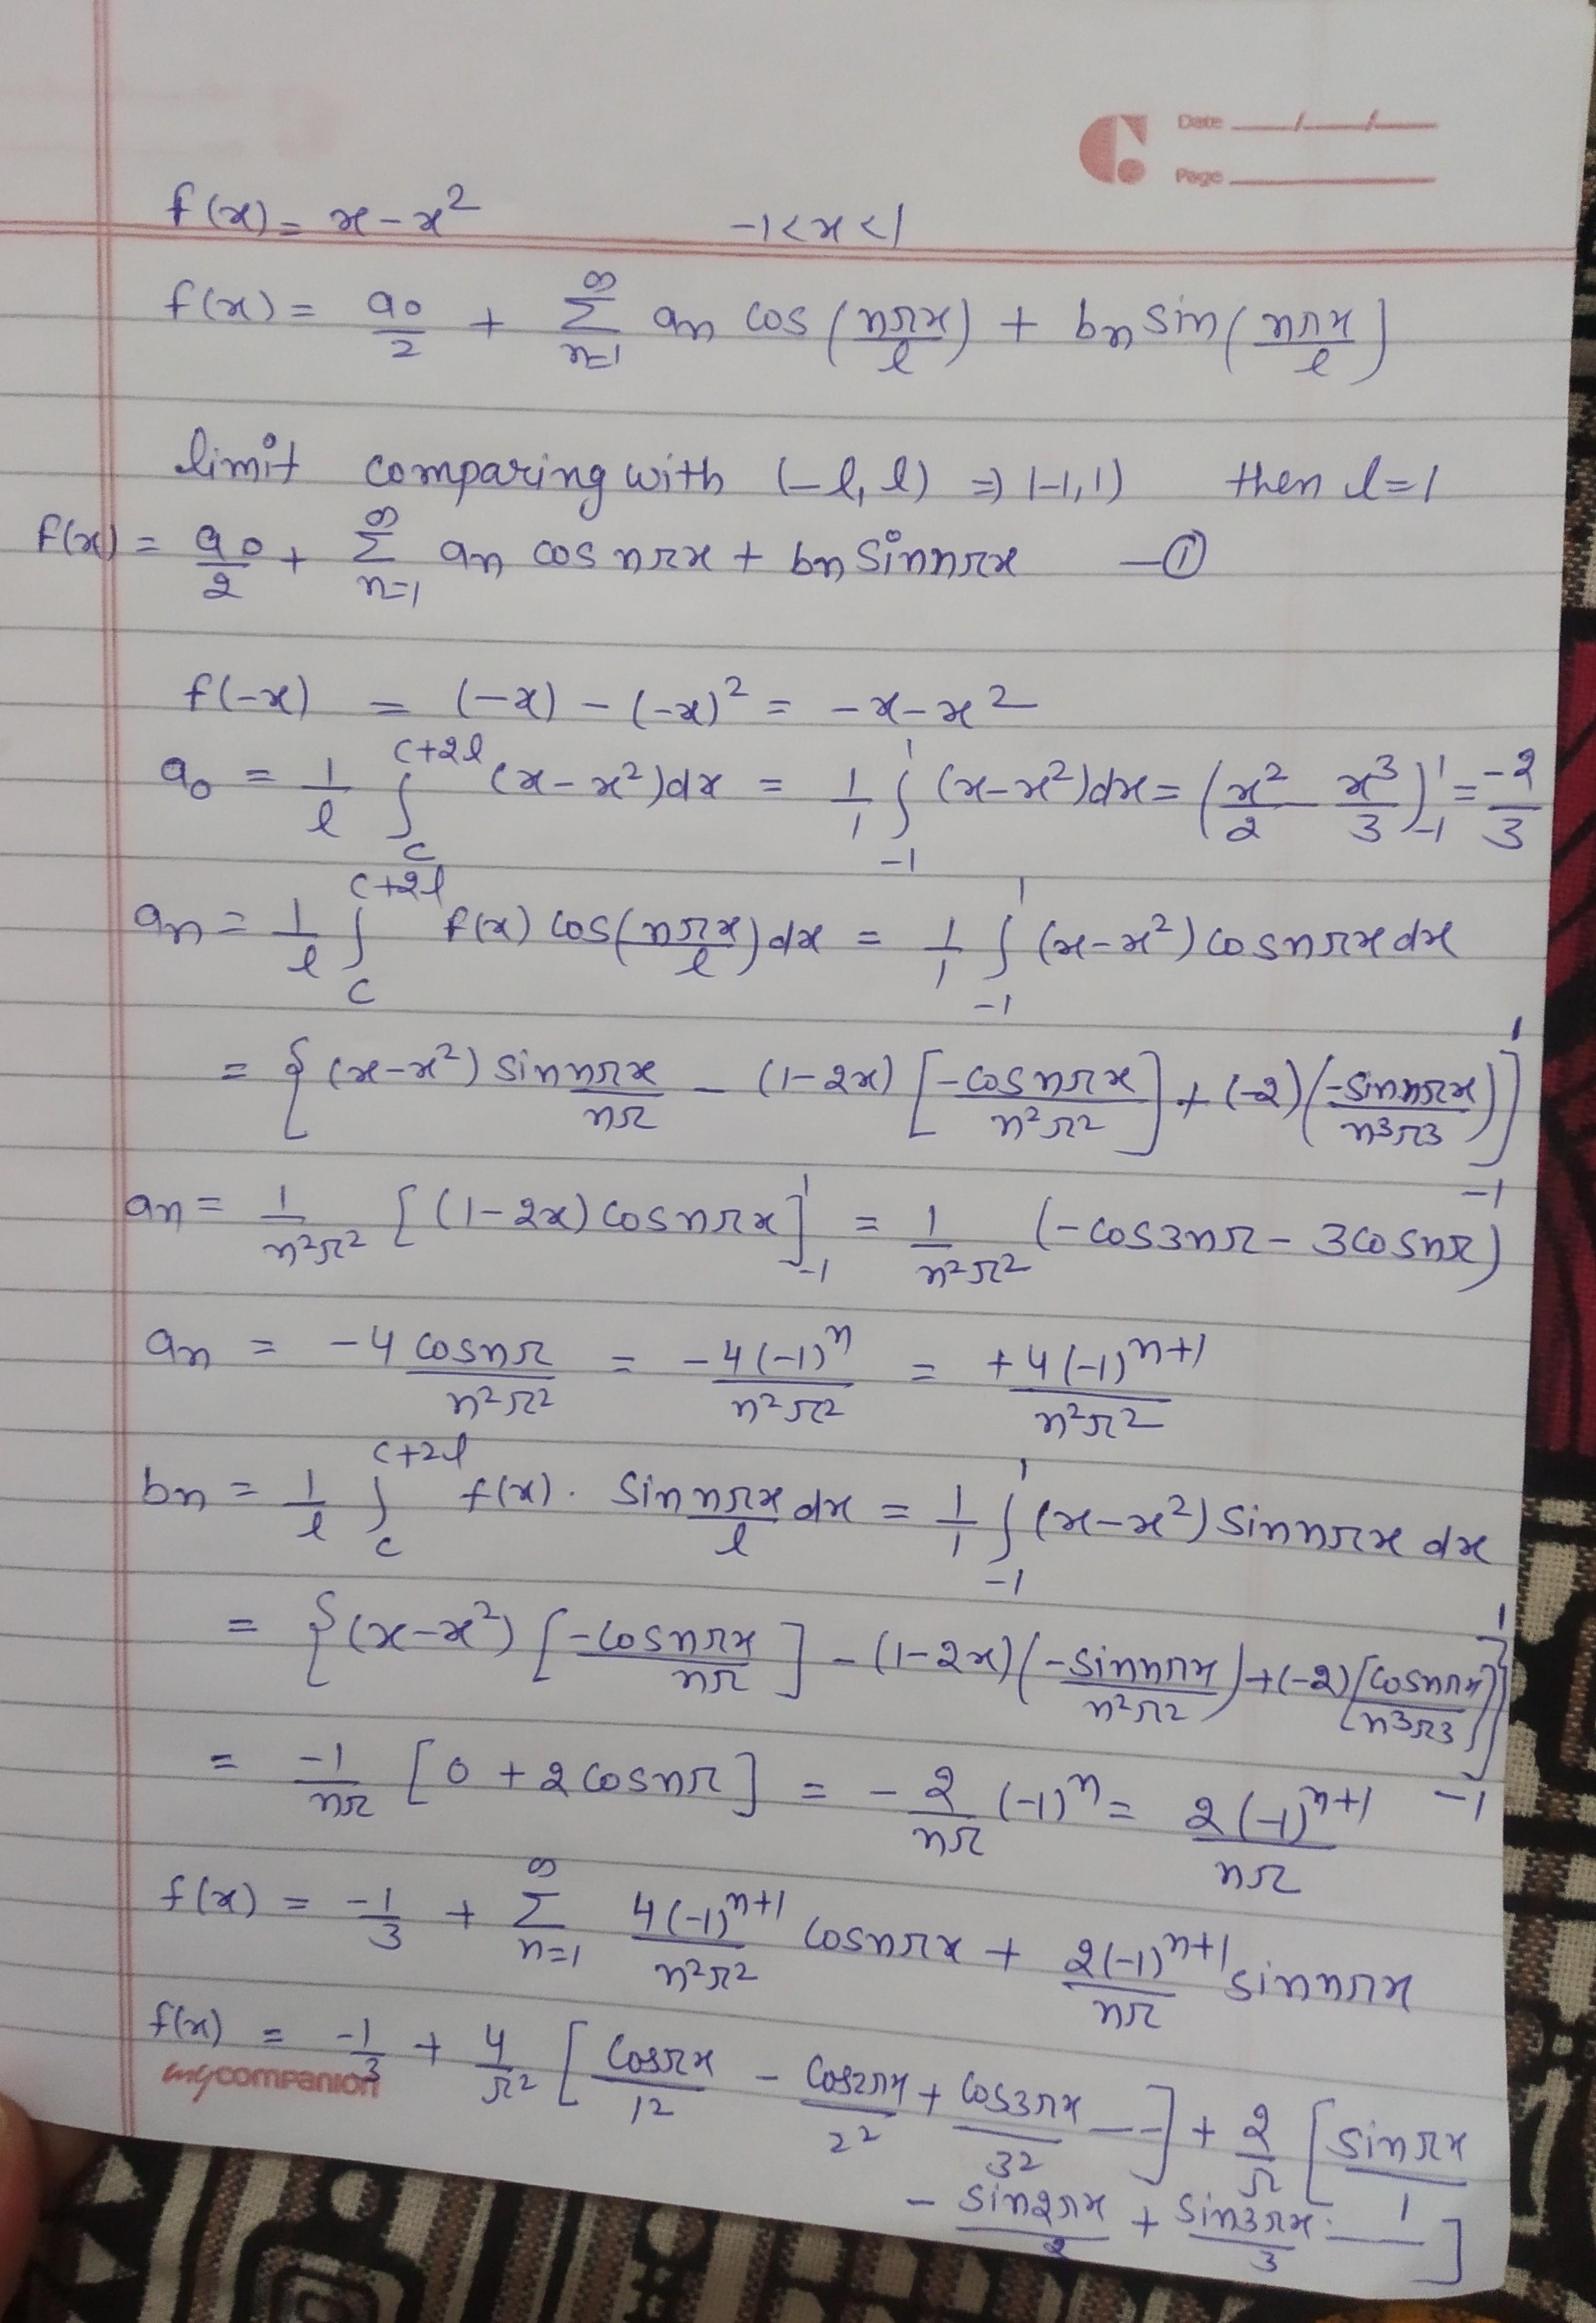 Date ___/___/___
Page ___
f(x) = x - x²   -1<x<1
f(x) = a₀/2 + Σ_{n=1}^{∞} aₙ cos (nπx/l) + bₙ sin (nπx/l)
limit comparing with (-l, l) ⇒ (-1, 1) then l=1
f(x) = a₀/2 + Σ_{n=1}^{∞} aₙ cos nπx + bₙ sin nπx —①
f(-x) = (-x) - (-x)² = -x - x²
a₀ = 1/l ∫_{c}^{c+2l} (x - x²)dx = 1/1 ∫_{-1}^{1} (x-x²)dx = (x²/2 - x³/3)_{-1}^{1} = -2/3
aₙ = 1/l ∫_{c}^{c+2l} f(x) cos(nπx/l)dx = 1/1 ∫_{-1}^{1} (x-x²) cosnπx dx
= {(x-x²) sin nπx/nπ - (1-2x) [-cosnπx/n²π²] + (-2) (-sinnπx/n³π³)]_{-1}^{1}
aₙ = 1/n²π² [(1-2x) cosnπx]_{-1}^{1} = 1/n²π² (-cos3nπ - 3cosnπ)
aₙ = -4 cosnπ/n²π² = -4(-1)ⁿ/n²π² = +4(-1)ⁿ⁺¹/n²π²
bₙ = 1/l ∫_{c}^{c+2l} f(x). sin nπx/l dx = 1/1 ∫_{-1}^{1} (x-x²) sin nπx dx
= {(x-x²) [-cosnπx/nπ] - (1-2x) (-sinnπx/n²π²) + (-2) [cosnπx/n³π³]}_{-1}^{1}
= -1/nπ [0 + 2cosnπ] = -2/nπ (-1)ⁿ = 2(-1)ⁿ⁺¹/nπ
f(x) = -1/3 + Σ_{n=1}^{∞} 4(-1)ⁿ⁺¹/n²π² cosnπx + 2(-1)ⁿ⁺¹/nπ sinnπx
f(x) = -1/3 + 4/π² [cosπx/1² - cos2πx/2² + cos3πx/3² --] + 2/π [sinπx/1
- sin2πx/2 + sin3πx/3 --]
mycompanion